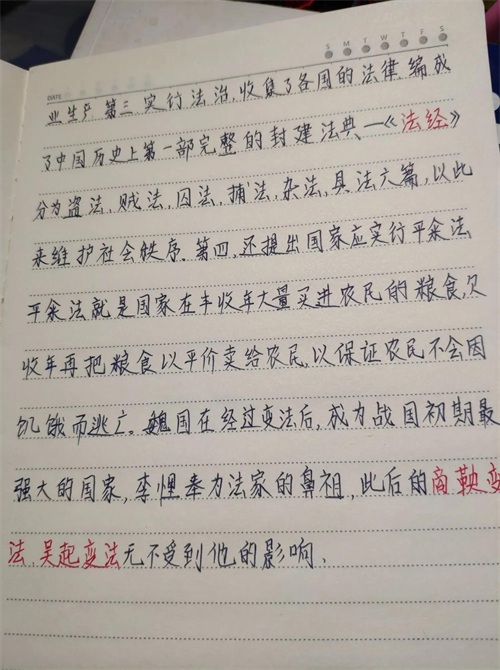 S M T W T F S
业生产. 第三 实行法治,收集了各国的法律 编成
了中国历史上第一部完整的封建法典—《法经》
分为盗法,贼法,囚法,捕法,杂法,具法六篇,以此
来维护社会秩序. 第四,还提出国家应实行平籴法
平籴法就是国家在丰收年大量买进农民的粮食,欠
收年再把粮食以平价卖给农民,以保证农民不会因
饥饿而逃亡. 魏国在经过变法后,成为战国初期最
强大的国家,李悝奉为法家的鼻祖,此后的商鞅变
法,吴起变法无不受到他的影响.